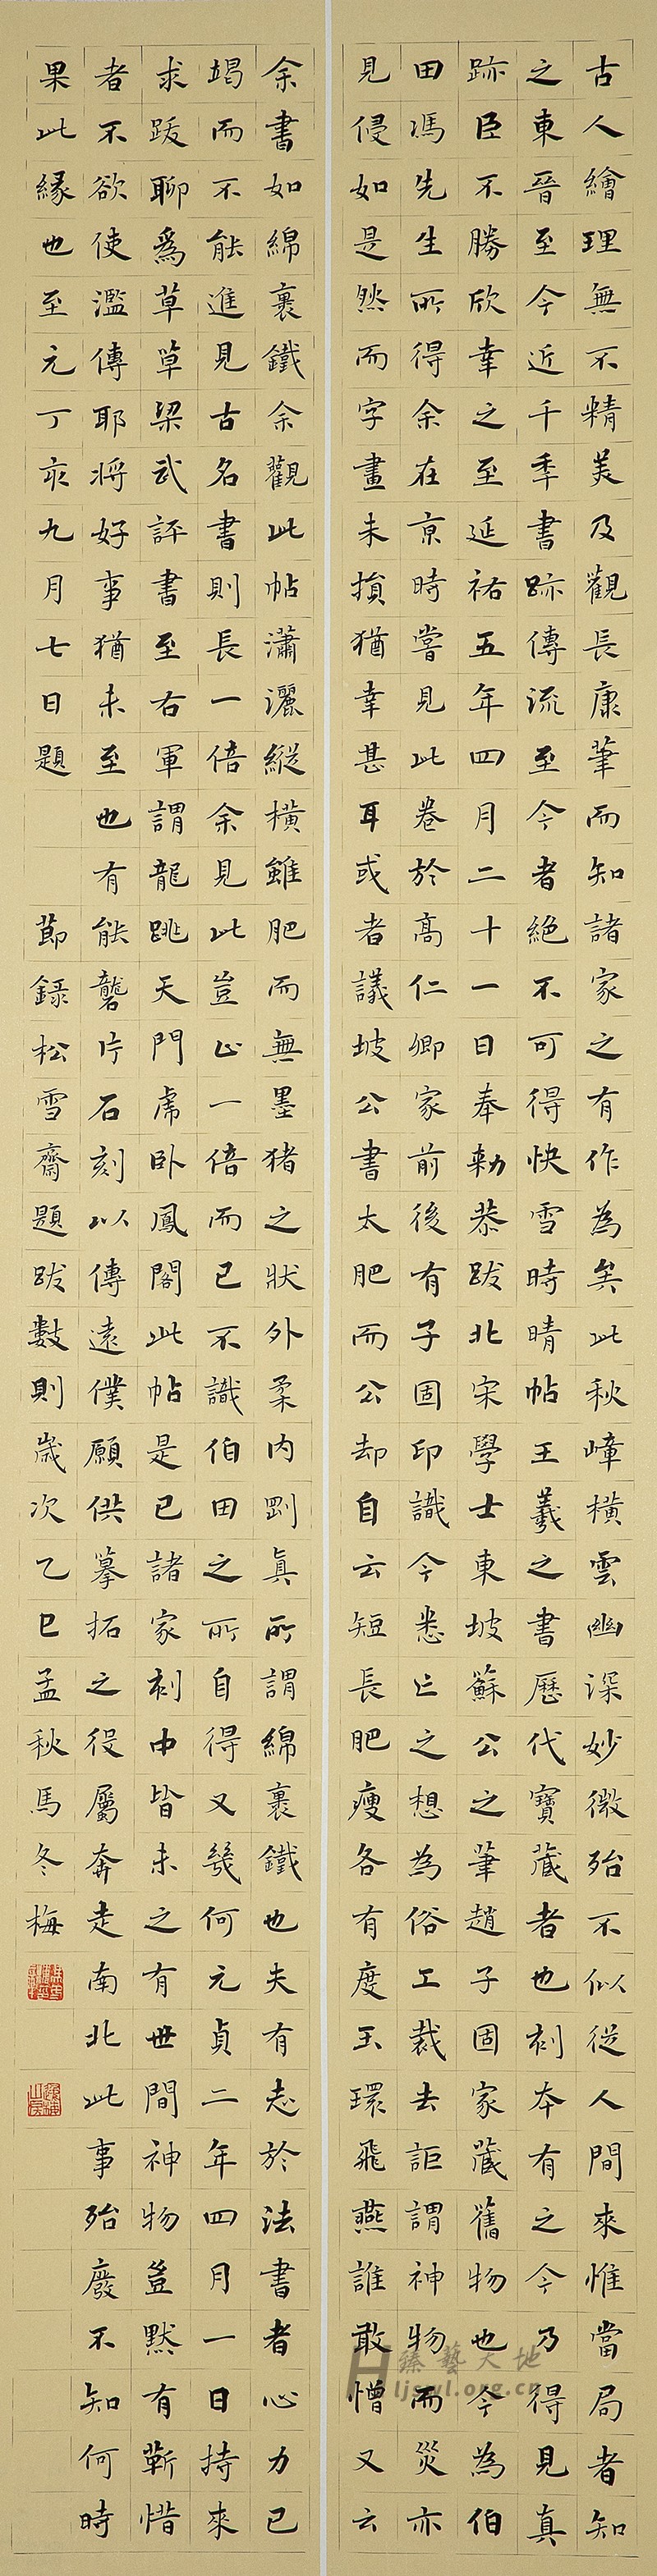 古人繪理無不精美及觀長康筆而知諸家之有作為矣此秋嶂橫雲幽深妙微殆不似從人間來惟當局者知
之東晉至今近千季書跡傳流至今者絕不可得快雪時晴帖王羲之書歷代寶藏者也刻本有之今乃得見真
跡臣不勝欣幸之至延祐五年四月二十一日奉勅恭跋北宋學士東坡蘇公之筆趙子固家藏舊物也今為伯
田馮先生所得余在京時嘗見此卷於高仁卿家前後有子固印識今悉亡之想為俗工裁去詎謂神物而災亦
見侵如是然而字畫未損猶幸甚耳或者議坡公書太肥而公却自云短長肥瘦各有度玉環飛燕誰敢憎又云
余書如綿裹鐵余觀此帖瀟灑縱橫雖肥而無墨猪之狀外柔內剛真所謂綿裹鐵也夫有志於法書者心力已
竭而不能進見古名書則長一倍余見此豈止一倍而已不識伯田之所自得又幾何元貞二年四月一日持來
求跋聊爲草草梁武評書至右軍謂龍跳天門虎臥鳳閣此帖是已諸家刻中皆未之有世間神物豈默有靳惜
者不欲使濫傳耶將好事猶未至也有能礱片石刻以傳遠僕願供摹拓之役屬奔走南北此事殆廢不知何時
果此緣也至元丁亥九月七日題 節錄松雪齋題跋數則歲次乙巳孟秋馬冬梅
臻藝天地
ljswl.org.cn